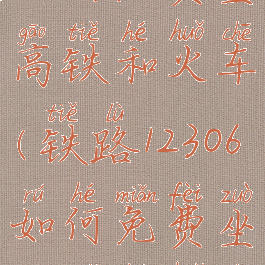 gāo tiě hé huǒ chē
高铁和火车
tiě lù
(铁路12306
rú hé miǎn fèi zuò
如何免费坐